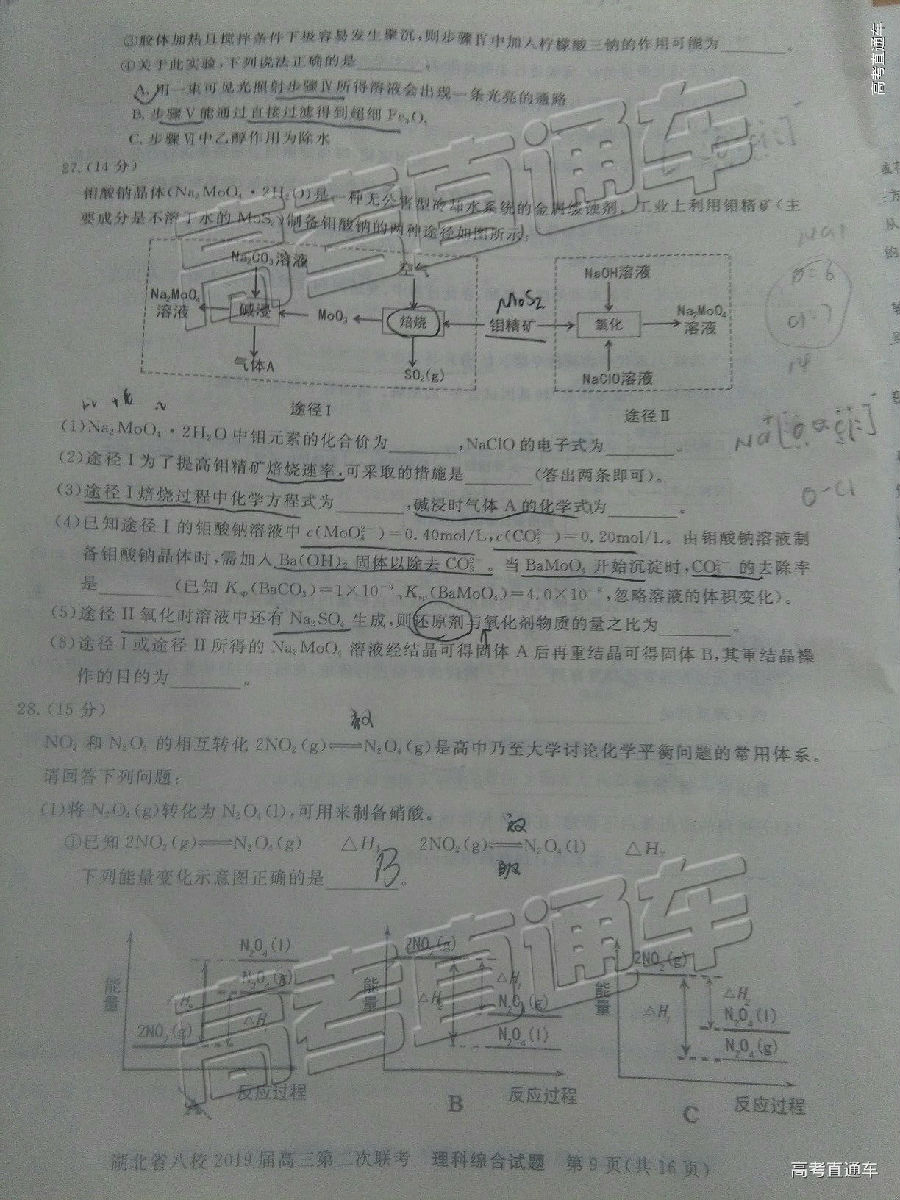 ③胶体加热且搅拌条件下极容易发生聚沉,则步骤Ⅳ中加入柠檬酸三钠的作用可能为______。
④关于此实验,下列说法正确的是______。
A. 用一束可见光照射步骤Ⅳ所得溶液会出现一条光亮的通路
B. 步骤Ⅴ能通过直接过滤得到超细Fe₃O₄
C. 步骤Ⅵ中乙醇作用为除水
27.(14分)
钼酸钠晶体(Na₂MoO₄·2H₂O)是一种无公害型冷却水系统的金属缓蚀剂。工业上利用钼精矿(主
要成分是不溶于水的MoS₂)制备钼酸钠的两种途径如图所示:
Na₂CO₃溶液
空气
NaOH溶液
MoS₂
Na₂MoO₄溶液
碱浸
MoO₃
焙烧
钼精矿
氧化
Na₂MoO₄溶液
气体A
SO₂(g)
NaClO溶液
途径Ⅰ
途径Ⅱ
(1)Na₂MoO₄·2H₂O中钼元素的化合价为______,NaClO的电子式为______。
(2)途径Ⅰ为了提高钼精矿焙烧速率,可采取的措施是______(答出两条即可)。
(3)途径Ⅰ焙烧过程中化学方程式为______,碱浸时气体A的化学式为______。
(4)已知途径Ⅰ的钼酸钠溶液中c(MoO₄²⁻)=0.40mol/L,c(CO₃²⁻)=0.20mol/L。由钼酸钠溶液制
备钼酸钠晶体时,需加入Ba(OH)₂固体以除去CO₃²⁻。当BaMoO₄开始沉淀时,CO₃²⁻的去除率
是______(已知Ksp(BaCO₃)=1×10⁻⁹、Ksp(BaMoO₄)=4.0×10⁻⁸,忽略溶液的体积变化)。
(5)途径Ⅱ氧化时溶液中还有Na₂SO₄生成,则还原剂与氧化剂物质的量之比为______。
(6)途径Ⅰ或途径Ⅱ所得的Na₂MoO₄溶液经结晶可得固体A后再重结晶可得固体B,其重结晶操
作的目的为______。
28.(15分)
NO₂和N₂O₄的相互转化2NO₂(g)⇌N₂O₄(g)是高中乃至大学讨论化学平衡问题的常用体系。
请回答下列问题:
(1)将N₂O₄(g)转化为N₂O₄(l),可用来制备硝酸。
①已知2NO₂(g)⇌N₂O₄(g) △H₁ 2NO₂(g)⇌N₂O₄(l) △H₂
下列能量变化示意图正确的是 B 。
能量 N₂O₄(l) N₂O₄(g) 2NO₂(g) △H₂ △H₁ 反应过程
能量 2NO₂(g) △H₂ △H₁ N₂O₄(g) N₂O₄(l) 反应过程
能量 2NO₂(g) △H₁ △H₂ N₂O₄(l) N₂O₄(g) 反应过程
A
B
C
湖北省八校2019届高三第二次联考 理科综合试题 第9页(共16页)
高考直通车
高考直通车
高考直通车
高考直通车